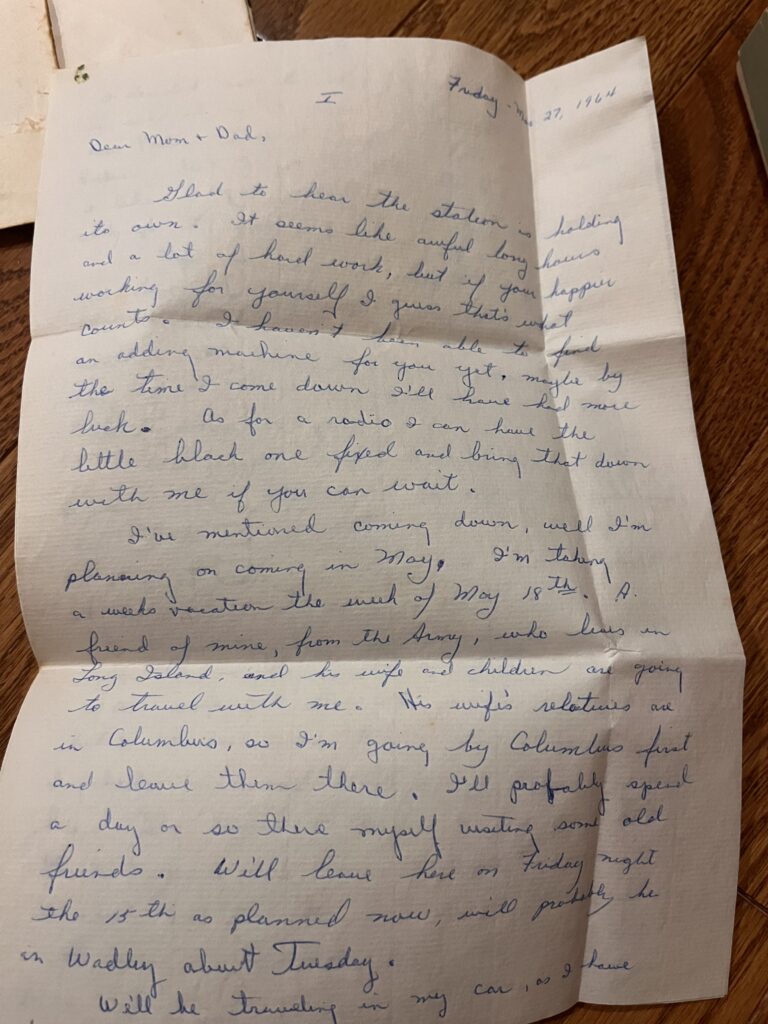 I
Friday - Mar 27, 1964
Dear Mom + Dad,
Glad to hear the station is holding
its own. It seems like awful long hours
and a lot of hard work, but if your happier
working for yourself I guess that's what
counts. I haven't been able to find
an adding machine for you yet, maybe by
the time I come down I'll have had more
luck. As for a radio I can have the
little black one fixed and bring that down
with me if you can wait.
I've mentioned coming down, well I'm
planning on coming in May. I'm taking
a weeks vacation the week of May 18th. A
friend of mine, from the Army, who lives in
Long Island, and his wife and children are going
to travel with me. His wife's relatives are
in Columbus, so I'm going by Columbus first
and leave them there. I'll probably spend
a day or so there myself visiting some old
friends. Will leave here on Friday night
the 15th as planned now, will probably be
in Wadley about Tuesday.
We'll be traveling in my car, as I have